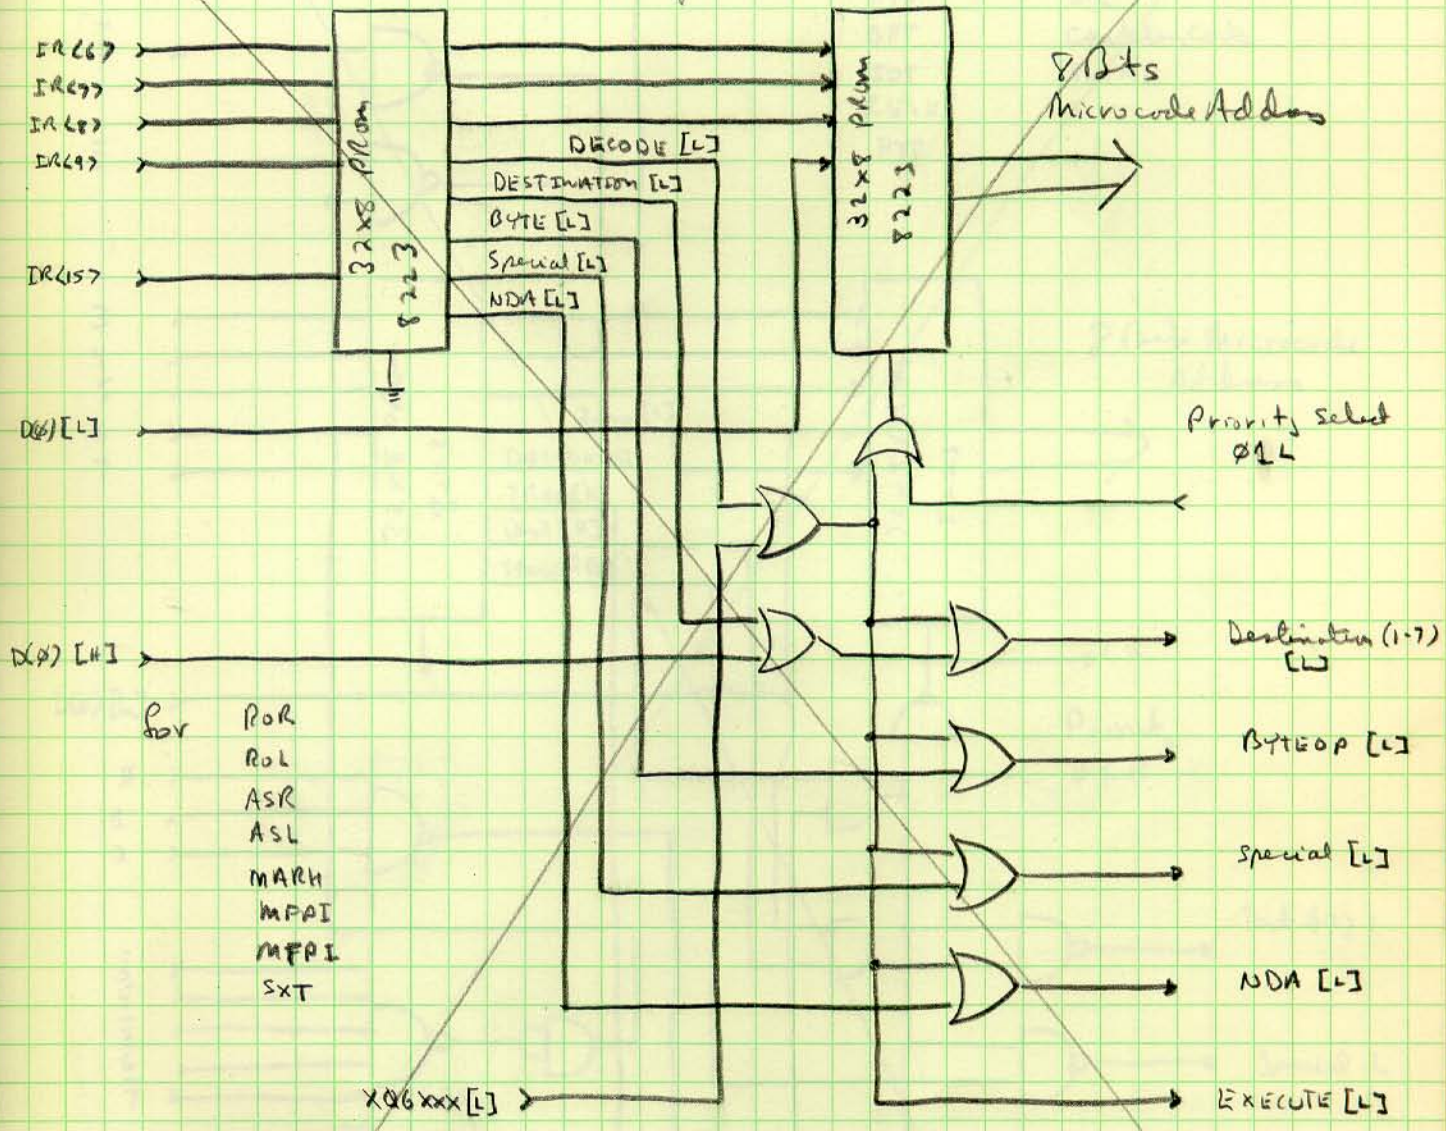 IR<6>
IR<7>
IR<8>
IR<9>
IR<15>
32x8 PROM
8223
DECODE [L]
DESTINATION [L]
BYTE [L]
Special [L]
NDA [L]
32x8 PROM
8223
8 Bits
Microcode Address
D(6) [L]
Priority Select
Ø1L
D(Ø) [H]
Destination (1-7)
[L]
for
ROR
ROL
ASR
ASL
MARK
MFPI
MFPI
SXT
BYTEOP [L]
Special [L]
NDA [L]
XØ6XXX[L]
EXECUTE [L]